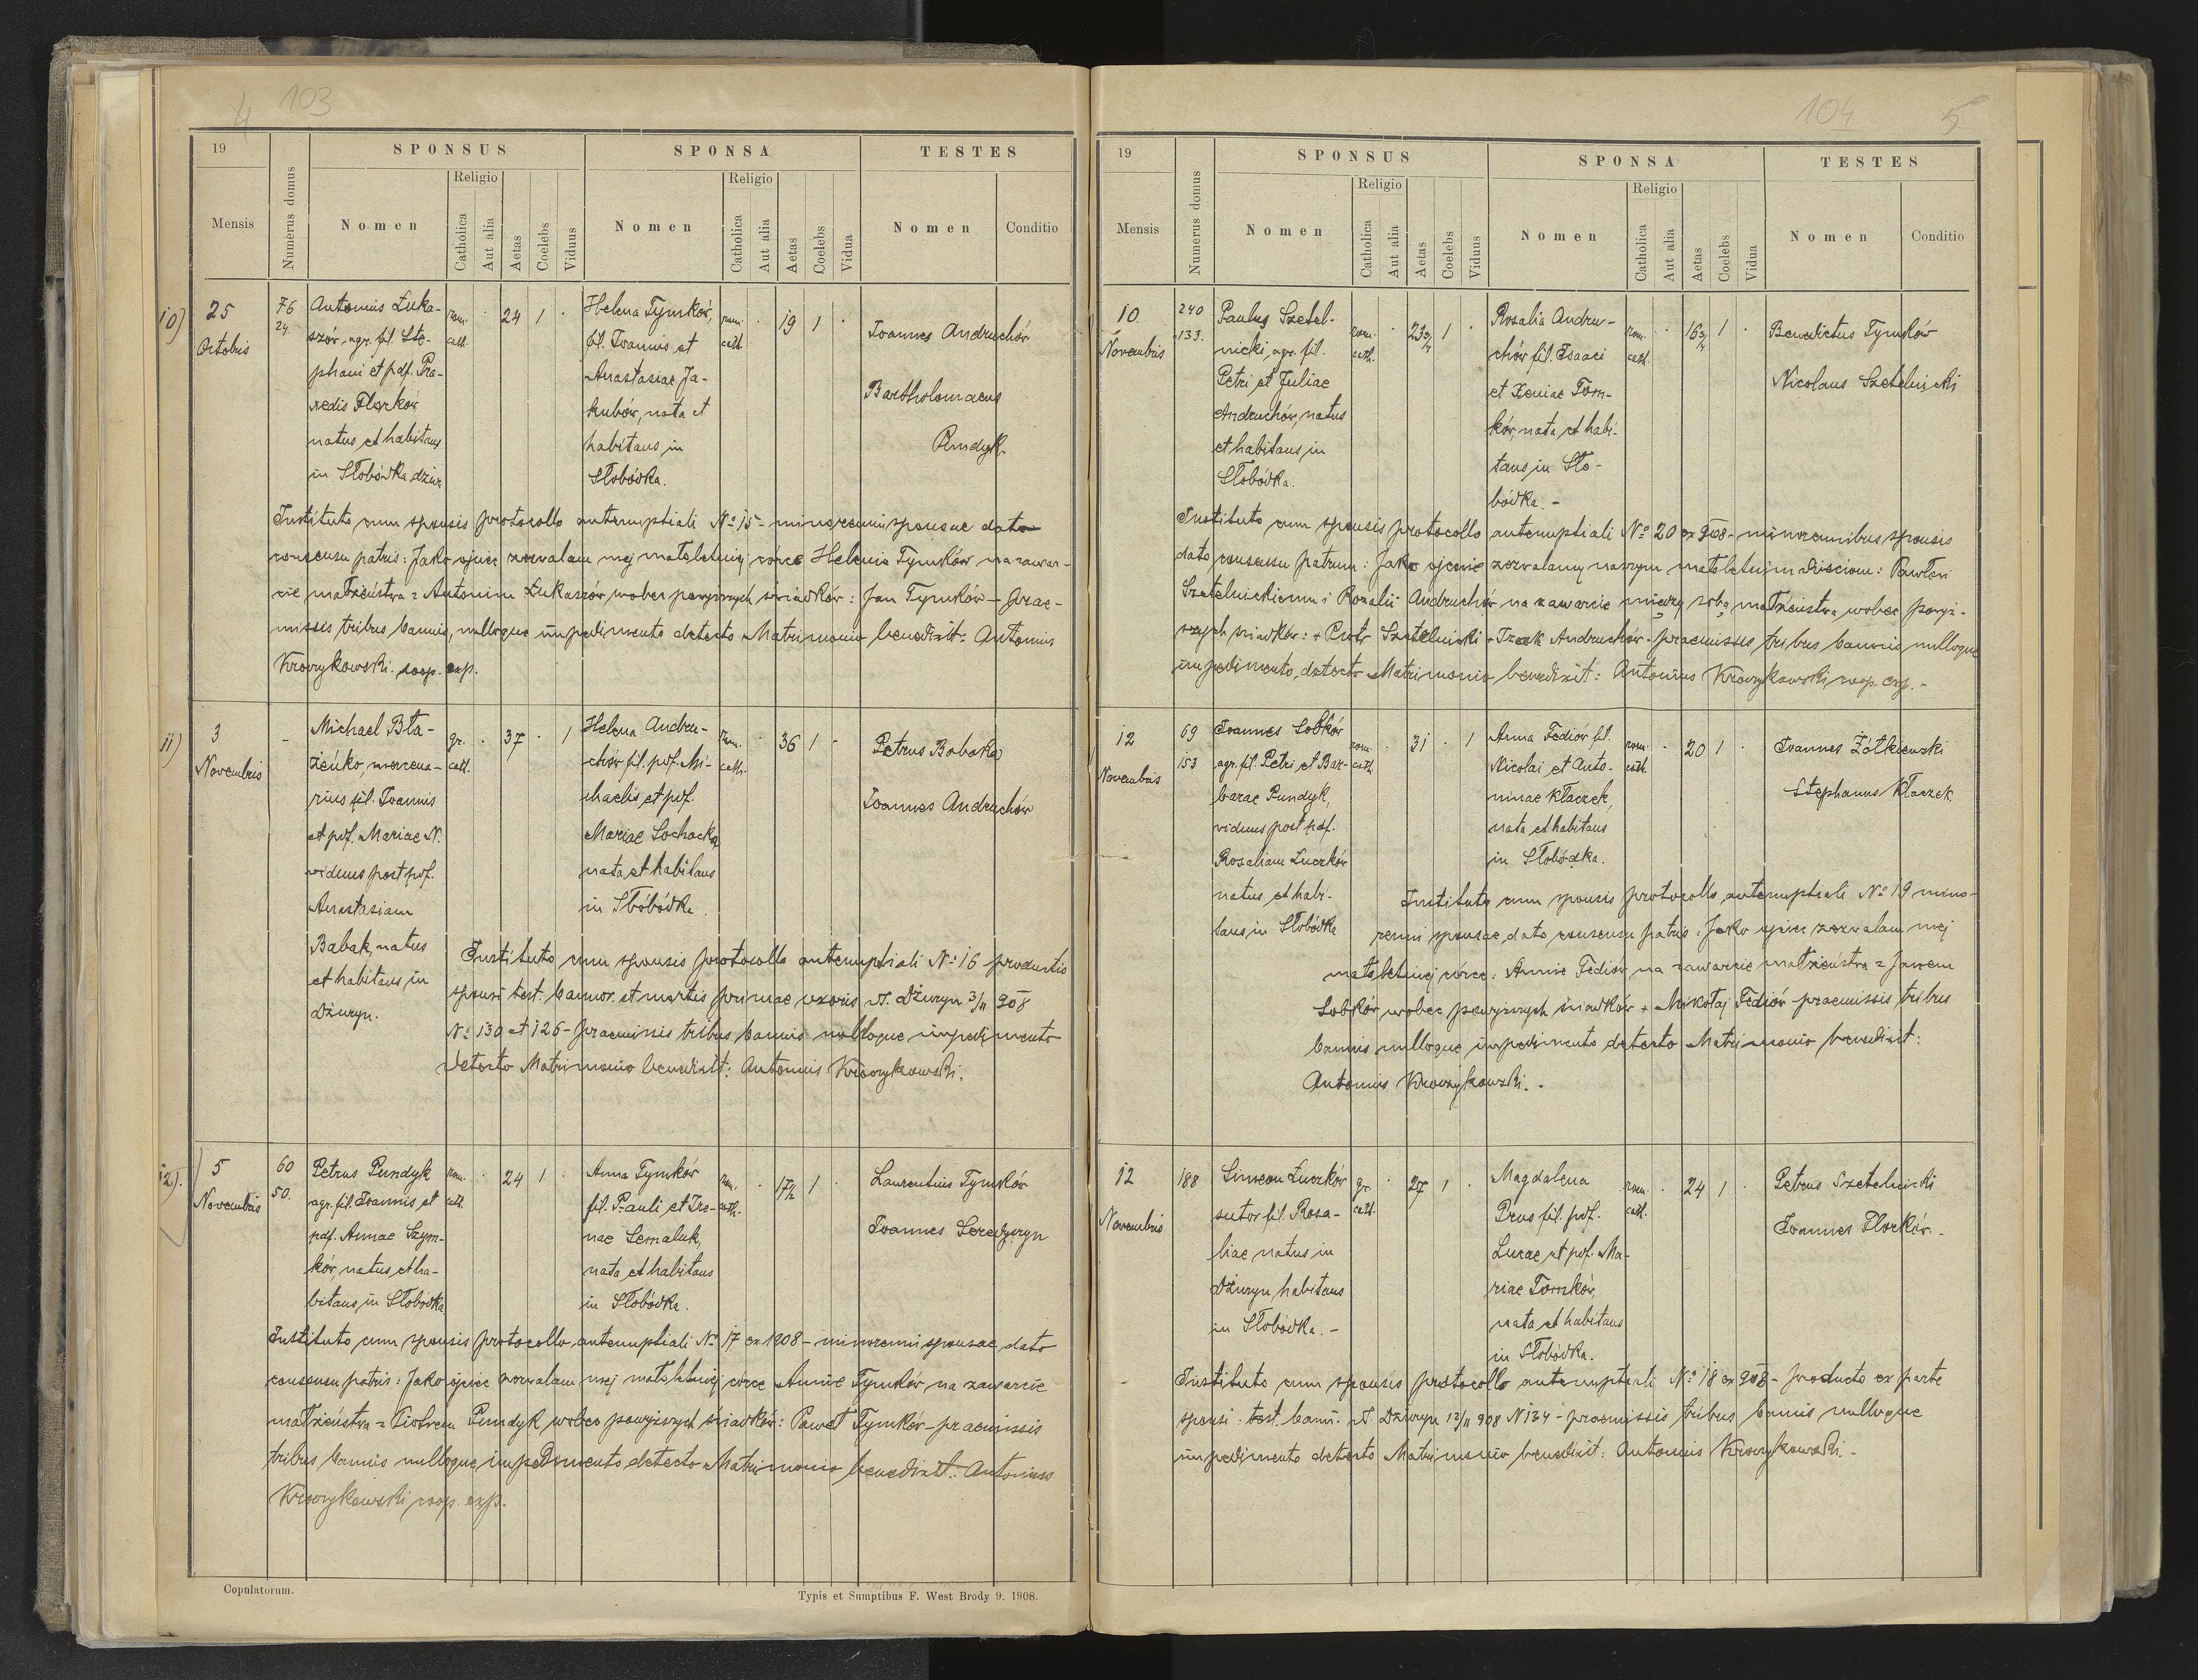 4 103
19
Mensis
Numerus domus
SPONSUS
Nomen
Religio
Catholica
Aut alia
Aetas
Coelebs
Viduus
SPONSA
Nomen
Religio
Catholica
Aut alia
Aetas
Coelebs
Vidua
TESTES
Nomen
Conditio
10)
25
Octobris
76
24.
Antonius Łuka-
szów, agr. fil. Ste-
phani et pdf. Pra-
xedis Florków
natus et habitans
in Słobódka dżur.
rom.
cath.
24
1
Helena Tymków,
fil. Joannis et
Anastasiae Ja-
kubów, nata et
habitans in
Słobódka.
rom.
cath.
19
1
Joannes Andruchów
Bartholomaeus
Pundyk.
Instituto cum sponsis protocollo antenuptiali No 15 - minorenni sponsae dato
consensu patris: Jako ojciec zezwalam mej małoletniej córce Helenie Tymków na zawar-
cie małżeństwa z Antonim Łukaszów wobec powyższych świadków: Jan Tymków - prae-
missis tribus bannis, nulloque impedimento detecto Matrimonio benedixit: Antonius
Krovzykowski coop. exp.
11)
3
Novembris
-
Michael Bła-
żeńko, mercena-
rius fil. Joannis
et pdf. Mariae N.
viduus post pdf.
Anastasiam
Babak, natus
et habitans in
Dżuryn.
gr.
cath.
37
1
Helena Andru-
chów fil. pdf. Mi-
chaelis et pdf.
Mariae Sochacka
nata et habitans
in Słobódka.
rom.
cath.
36
1
Petrus Babaka
Joannes Andruchów
Instituto cum sponsis protocollo antenuptiali No 16 productis
sponsi test. bannor. et mortis primae uxoris dt. Dżuryn 3/11 908
No 130 et 126 - praemissis tribus bannis nulloque impedimento
detecto Matrimonio benedixit: Antonius Krovzykowski.
12).
5
Novembris
60
50.
Petrus Pundyk
agr. fil. Joannis et
pdf. Annae Szym-
ków, natus et ha-
bitans in Słobodka
rom.
cath.
24
1
Anna Tymków
fil. Pauli et Ire-
nae Semaluk,
nata et habitans
in Słobódka.
rom.
cath.
17 1/2
1
Laurentius Tymków
Joannes Seredyszyn
Instituto cum sponsis protocollo antenuptiali No 17 ex 1908 - minorenni sponsae dato
consensu patris: Jako ojciec zezwalam mej małoletniej córce Annie Tymków na zawarcie
małżeństwa z Piotrem Pundyk wobec powyższych świadków: Paweł Tymków - praemissis
tribus bannis nulloque impedimento detecto Matrimonio benedixit: Antonius
Krovzykowski coop. exp.
Copulatorum.
Typis et Sumptibus F. West Brody 9. 1908.
104 5
19
Mensis
Numerus domus
SPONSUS
Nomen
Religio
Catholica
Aut alia
Aetas
Coelebs
Viduus
SPONSA
Nomen
Religio
Catholica
Aut alia
Aetas
Coelebs
Vidua
TESTES
Nomen
Conditio
10
Novembris
240
133.
Paulus Szetel-
nicki, agr. fil.
Petri et Juliae
Andruchów, natus
et habitans in
Słobódka.
rom.
cath.
23 3/4
1
Rosalia Andru-
chów fil. Isaaci
et Xeniae Tom-
ków, nata et habi-
tans in Sło-
bódka. -
rom.
cath.
16 3/4
1
Benedictus Tymków
Nicolaus Szetelnicki
Instituto cum sponsis protocollo antenuptiali No 20 ex 908 - minorennibus sponsis
dato consensu patrum: Jako ojcowie zezwalamy naszym małoletnim dzieciom: Pawłowi
Szetelnickiemu i Rozalii Andruchów na zawarcie między sobą małżeństwa wobec powyż-
szych świadków: + Piotr Szetelnicki + Izak Andruchów - praemissis tribus bannis nulloque
impedimento, detecto Matrimonio benedixit: Antonius Krovzykowski coop. exp. -
12
Novembris
69
153
Joannes Sobków
agr. fil. Petri et Bar-
barae Pundyk,
viduus post pdf.
Rosaliam Łuczków
natus et habi-
tans in Słobódka
rom.
cath.
31
1
Anna Fediów fil.
Nicolai et Anto-
ninae Kłaczek,
nata et habitans
in Słobódka.
rom.
cath.
20
1
Joannes Żółkiewski
Stephanus Kłaczek
Instituto cum sponsis protocollo antenuptiali No 19 mino-
renni sponsae dato consensu patris: Jako ojciec zezwalam mej
małoletniej córce: Annie Fediów na zawarcie małżeństwa z Janem
Sobków wobec powyższych świadków + Mikołaj Fediów - praemissis tribus
bannis nulloque impedimento detecto Matrimonio benedixit:
Antonius Krovzykowski. -
12
Novembris
188
Simeon Łuczków
sutor fil. Rosa-
liae natus in
Dżuryn, habitans
in Słobódka. -
gr.
cath.
27
1
Magdalena
Prus fil. pdf.
Lucae et pdf. Ma-
riae Tomków,
nata et habitans
in Słobódka.
rom.
cath.
24
1
Petrus Szetelnicki
Joannes Florków. -
Instituto cum sponsis protocollo antenuptiali No 18 ex 908 - producto ex parte
sponsi: test. bann. dt. Dżuryn 12/11 908 N 134 - praemissis tribus bannis nulloque
impedimento detecto Matrimonio benedixit: Antonius Krovzykowski. -